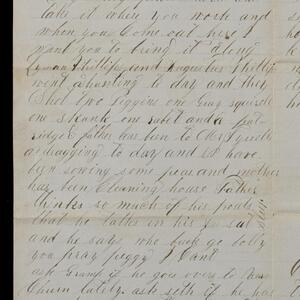 take it where you work and
when you Come out here I
want you to bring it along
Lyman Phillips and Augustus Phillips
went ahunting to day and they
Shot two piggins one Gray squirrel
one skunk one rabet and a pat
ridge father has ben to Chs
adragging to day and I have
ben sowing some peas and mother
has been Cleaning house Father
thinks so much of his
that he
and he says who back go
you pray peggy I Cant
ask Gramp if he goes over to
lately ask seth if he has